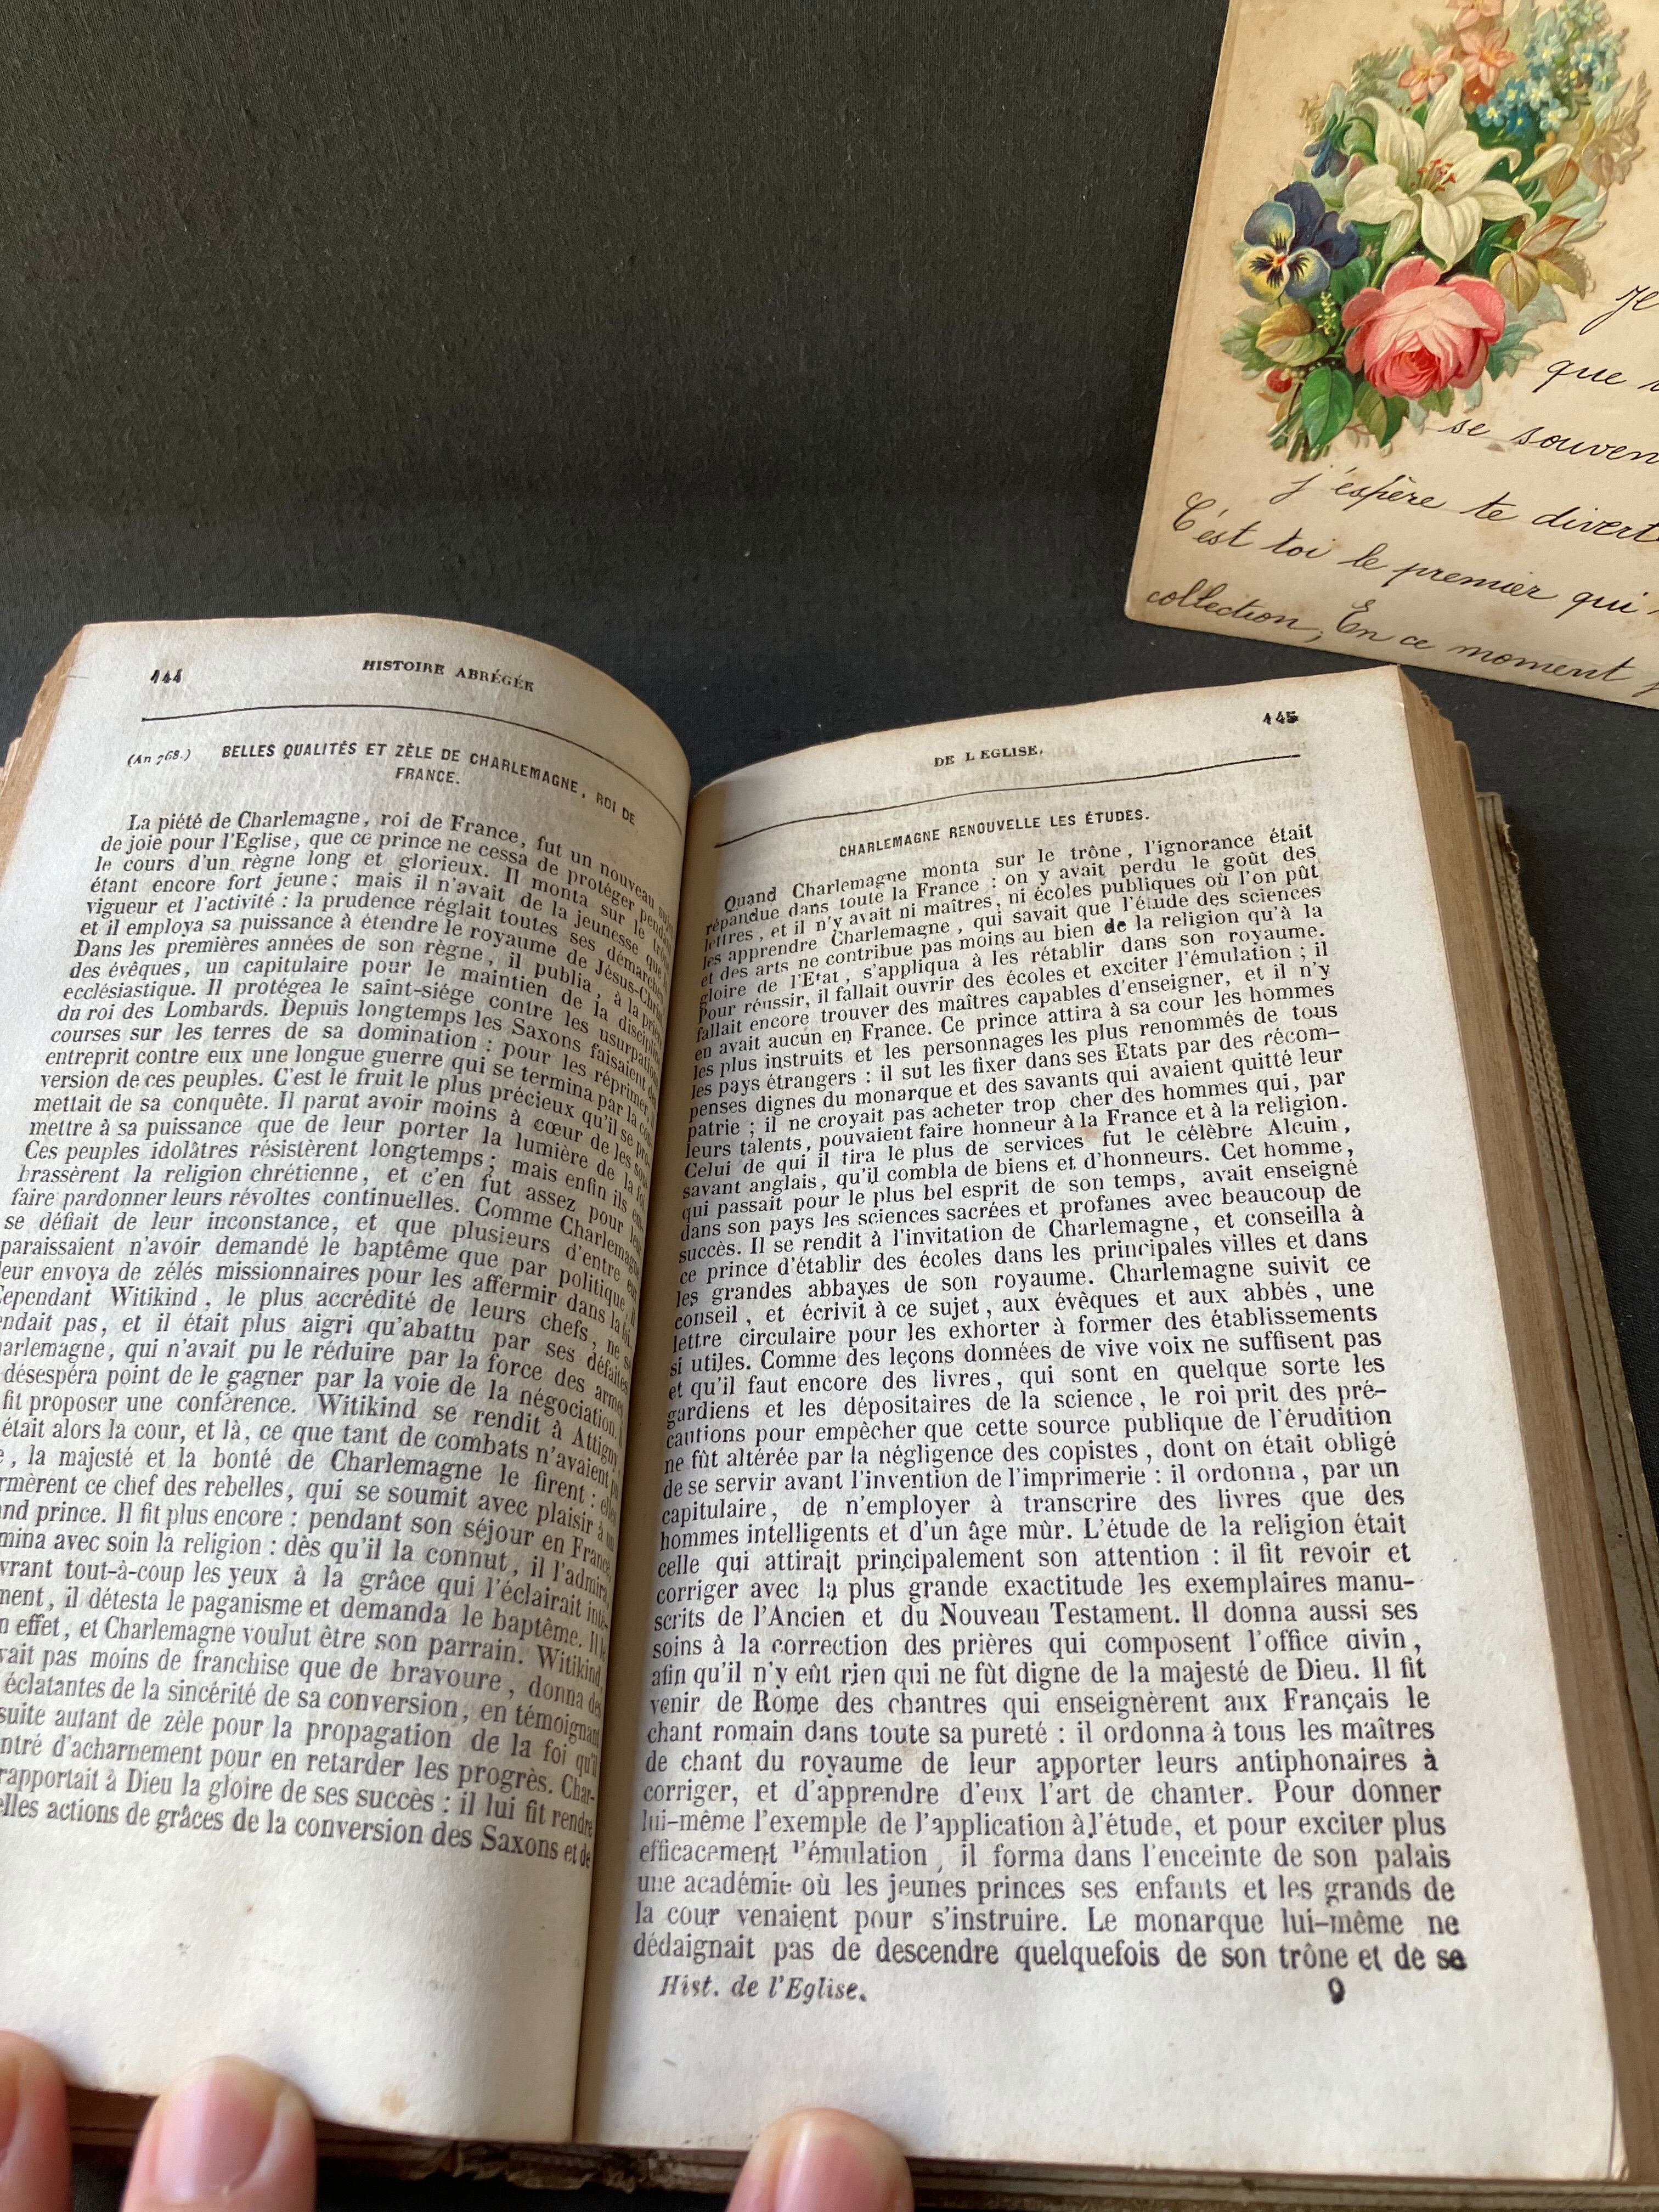 144
HISTOIRE ABRÉGÉE
(An 768.) BELLES QUALITÉS ET ZÈLE DE CHARLEMAGNE, ROI DE
FRANCE.
La piété de Charlemagne, roi de France, fut un nouveau
de joie pour l'Eglise, que ce prince ne cessa de protéger
le cours d'un règne long et glorieux. Il monta sur le
étant encore fort jeune; mais il n'avait de la jeunesse que
vigueur et l'activité : la prudence réglait toutes ses démarches
et il employa sa puissance à étendre le royaume de Jésus-Christ
Dans les premières années de son règne, il publia, à la
des évêques, un capitulaire pour le maintien de la
ecclésiastique. Il protégea le saint-siége contre les
du roi des Lombards. Depuis longtemps les Saxons faisaient
courses sur les terres de sa domination : pour les réprimer,
entreprit contre eux une longue guerre qui se termina par la
version de ces peuples. C'est le fruit le plus précieux qu'il se
mettait de sa conquête. Il parut avoir moins à cœur de les
mettre à sa puissance que de leur porter la lumière de la
Ces peuples idolâtres résistèrent longtemps; mais enfin ils
brassèrent la religion chrétienne, et c'en fut assez pour
faire pardonner leurs révoltes continuelles. Comme Charlemagne
se défiait de leur inconstance, et que plusieurs d'entre
paraissaient n'avoir demandé le baptême que par politique,
leur envoya de zélés missionnaires pour les affermir dans la
Cependant Witikind, le plus accrédité de leurs chefs, ne
endait pas, et il était plus aigri qu'abattu par ses défaites
harlemagne, qui n'avait pu le réduire par la force des
désespéra point de le gagner par la voie de la négociation.
fit proposer une conférence. Witikind se rendit à Attigny
était alors la cour, et là, ce que tant de combats n'avaient
, la majesté et la bonté de Charlemagne le firent :
rmèrent ce chef des rebelles, qui se soumit avec plaisir à
nd prince. Il fit plus encore : pendant son séjour en France
mina avec soin la religion : dès qu'il la connut, il l'admira,
vrant tout-à-coup les yeux à la grâce qui l'éclairait
ment, il détesta le paganisme et demanda le baptême. Il
n effet, et Charlemagne voulut être son parrain. Witikind,
vait pas moins de franchise que de bravoure, donna des
éclatantes de la sincérité de sa conversion, en témoignant
suite autant de zèle pour la propagation de la foi qu'il
ntré d'acharnement pour en retarder les progrès. Char-
rapportait à Dieu la gloire de ses succès : il lui fit rendre
elles actions de grâces de la conversion des Saxons et de
DE L EGLISE.
145
CHARLEMAGNE RENOUVELLE LES ÉTUDES.
Quand Charlemagne monta sur le trône, l'ignorance était
répandue dans toute la France : on y avait perdu le goût des
lettres, et il n'y avait ni maîtres, ni écoles publiques où l'on pût
les apprendre Charlemagne, qui savait que l'étude des sciences
et des arts ne contribue pas moins au bien de la religion qu'à la
gloire de l'Etat, s'appliqua à les rétablir dans son royaume.
Pour réussir, il fallait ouvrir des écoles et exciter l'émulation; il
fallait encore trouver des maîtres capables d'enseigner, et il n'y
en avait aucun en France. Ce prince attira à sa cour les hommes
les plus instruits et les personnages les plus renommés de tous
les pays étrangers : il sut les fixer dans ses Etats par des récom-
penses dignes du monarque et des savants qui avaient quitté leur
patrie; il ne croyait pas acheter trop cher des hommes qui, par
leurs talents, pouvaient faire honneur à la France et à la religion.
Celui de qui il tira le plus de services fut le célèbre Alcuin,
savant anglais, qu'il combla de biens et d'honneurs. Cet homme,
qui passait pour le plus bel esprit de son temps, avait enseigné
dans son pays les sciences sacrées et profanes avec beaucoup de
succès. Il se rendit à l'invitation de Charlemagne, et conseilla à
ce prince d'établir des écoles dans les principales villes et dans
les grandes abbayes de son royaume. Charlemagne suivit ce
conseil, et écrivit à ce sujet, aux évèques et aux abbés, une
lettre circulaire pour les exhorter à former des établissements
si utiles. Comme des leçons données de vive voix ne suffisent pas
et qu'il faut encore des livres, qui sont en quelque sorte les
gardiens et les dépositaires de la science, le roi prit des pré-
cautions pour empêcher que cette source publique de l'érudition
ne fût altérée par la négligence des copistes, dont on était obligé
de se servir avant l'invention de l'imprimerie : il ordonna, par un
capitulaire, de n'employer à transcrire des livres que des
hommes intelligents et d'un âge mûr. L'étude de la religion était
celle qui attirait principalement son attention : il fit revoir et
corriger avec la plus grande exactitude les exemplaires manu-
scrits de l'Ancien et du Nouveau Testament. Il donna aussi ses
soins à la correction des prières qui composent l'office divin,
afin qu'il n'y eût rien qui ne fût digne de la majesté de Dieu. Il fit
venir de Rome des chantres qui enseignèrent aux Français le
chant romain dans toute sa pureté : il ordonna à tous les maîtres
de chant du royaume de leur apporter leurs antiphonaires à
corriger, et d'apprendre d'eux l'art de chanter. Pour donner
lui-même l'exemple de l'application à l'étude, et pour exciter plus
efficacement l'émulation, il forma dans l'enceinte de son palais
une académie où les jeunes princes ses enfants et les grands de
la cour venaient pour s'instruire. Le monarque lui-même ne
dédaignait pas de descendre quelquefois de son trône et de se
Hist. de l'Eglise. 9
Je
que
se souven
j'espère te divert
C'est toi le premier qui
collection, En ce moment